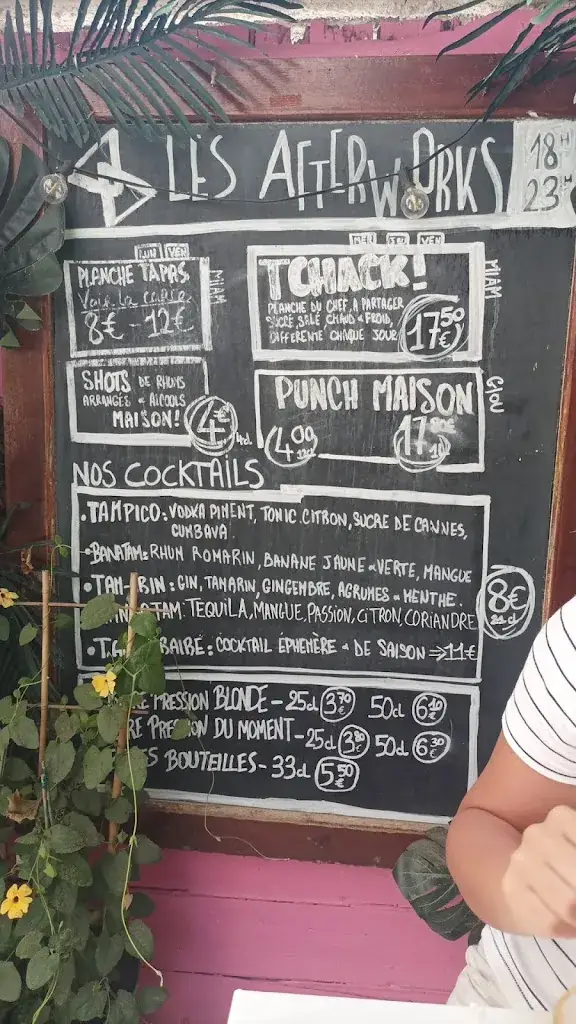 LES AFTERWORKS
18H
23H
LUN VEN
PLANCHE TAPAS
Voir la carte
8€ - 12€
MIAM
MER JEU VEN
TCHACK!
PLANCHE DU CHEF, A PARTAGER
SUCRÉ, SALÉ, CHAUD & FROID,
DIFFERENTE CHAQUE JOUR
17€50
MIAM
SHOTS DE RHUMS
ARRANGÉS & ALCOOLS
MAISON!
4€
4cl
PUNCH MAISON
4,00
12cl
17
1L
GLOU
NOS COCKTAILS
• TAMPICO: VODKA PIMENT, TONIC CITRON, SUCRE DE CANNES,
CUMBAVA.
• BANATAM: RHUM ROMARIN, BANANE JAUNE & VERTE, MANGUE
• TAM-BRIN: GIN, TAMARIN, GINGEMBRE, AGRUMES & MENTHE.
TAM: TEQUILA, MANGUE, PASSION, CITRON, CORIANDRE
• BAIBE: COCKTAIL ÉPHEMÈRE & DE SAISON ⇒ 11€
8€
22cl
PRESSION BLONDE - 25cl 3,70€ 50cl 6,10€
PRESSION DU MOMENT - 25cl 3,80€ 50cl 6,30€
BOUTEILLES - 33cl 5,50€